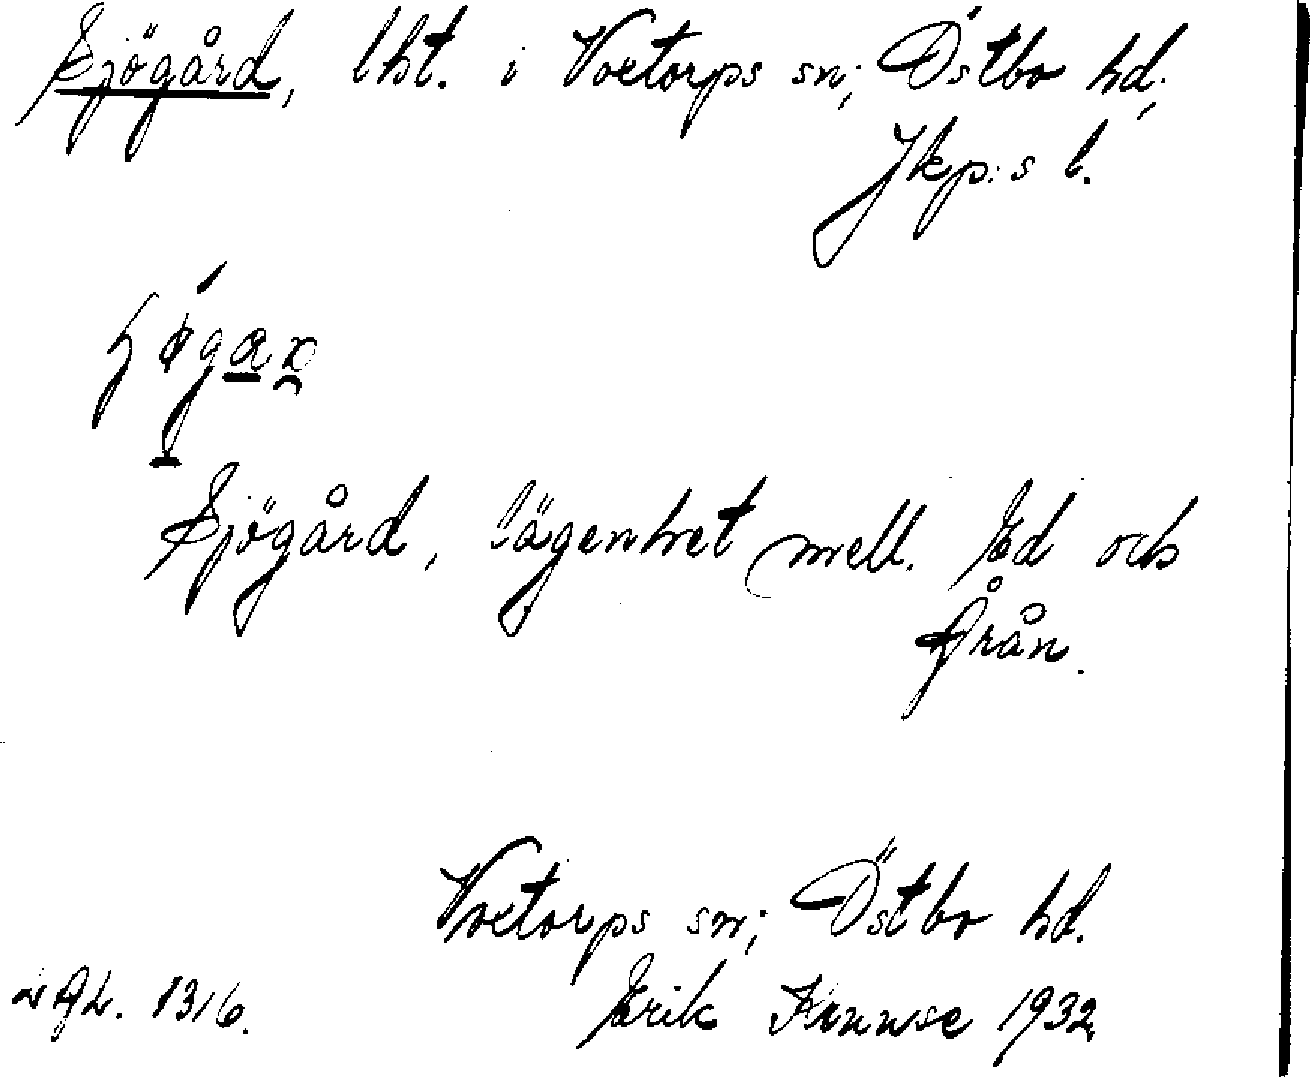 Sjögård, lht. i Voxtorps sn; Östbo hd;
Jkp:s l.
Sjögård, lägenhet mell. Ed och
Årån.
Voxtorps sn; Östbo hd.
Erik Kruuse 1932
1316.